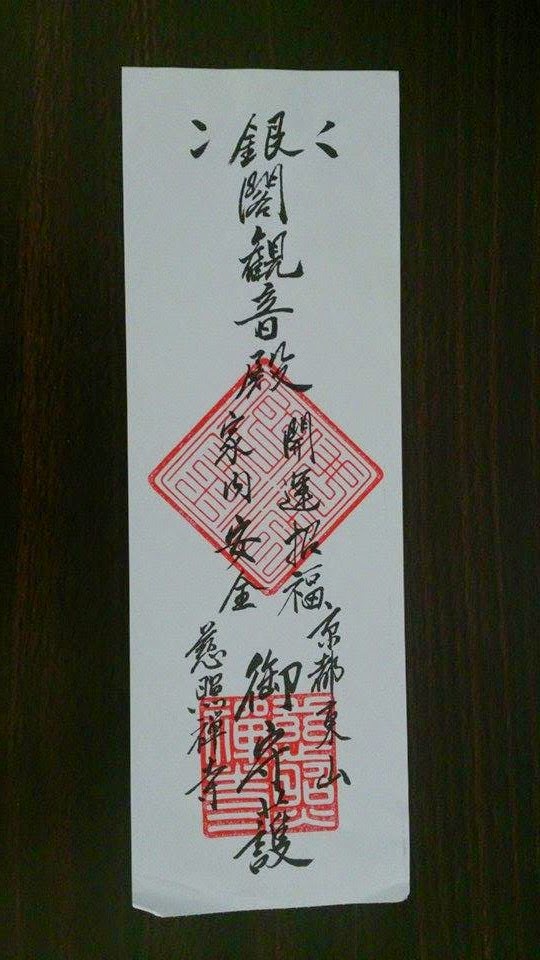 銀閣觀音殿
開運招福
家内安全
京都東山
御守護
慈照禅寺